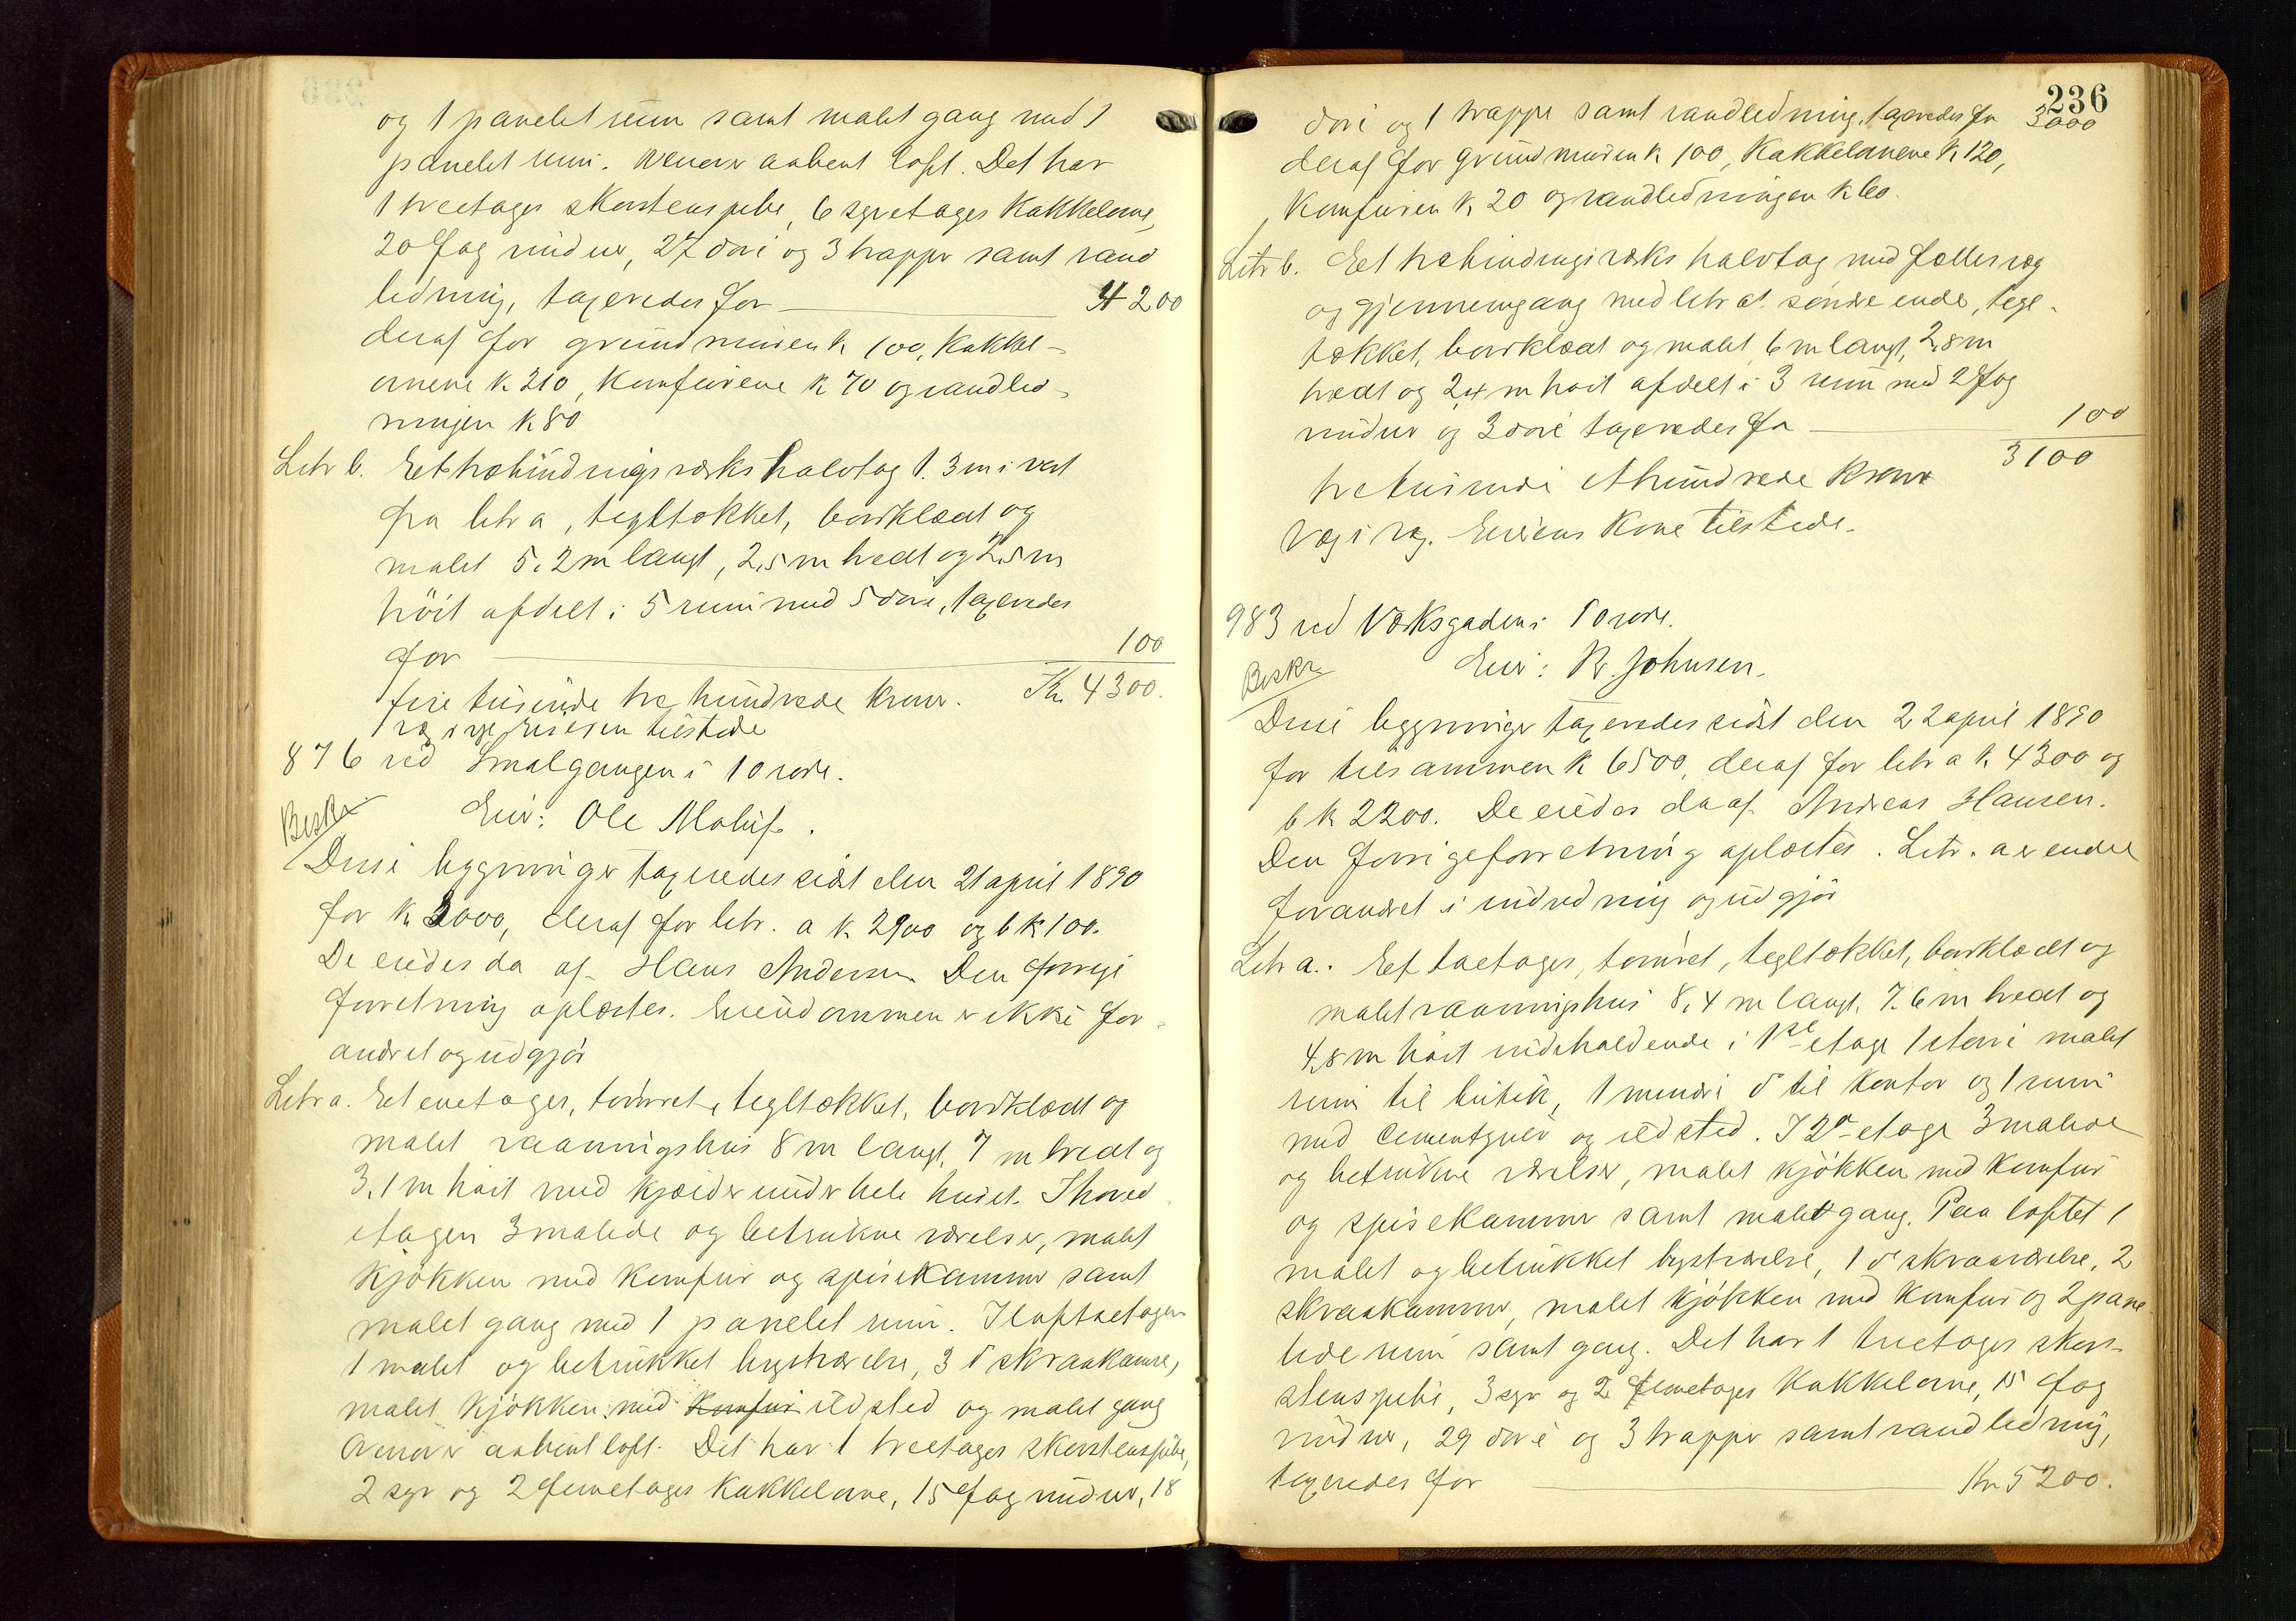 og 1 panelet rum samt malet gang med 1
panelet rum. Ovenover aabent loft. Det har
1 treetages skorstenspibe, 6 syvetages Kakkelovne,
20 fag vinduer, 27 döre og 3 trapper samt vand
ledning, taxeredes for 4200
deraf for grundmuren k 100, Kakkel-
ovnene k 210, Komfurene k 70 og vandled-
ningen k 80
Litr b. Et træbindingsværks halvtag 1.3 m i vest
fra litr a, tegltækket, bordklædt og
malet 5,2 m langt, 2,5 m bredt og 2,5 m
höit afdelt i 5 rum med 5 döre, taxeredes
for 100
fire tusinde tre hundrede kroner. Kr. 4300.
Eieren tilstede
876 ved Smalgangen i 10 rode.
Beskr. Eier: Ole Maluf.
Disse bygninger taxeredes sidst den 21 april 1890
for k. 3000, deraf for litr. a k. 2900 og b k 100.
De eiedes da af Hans Andersen. Den forrige
forretning oplæstes. Eiendommen er ikke for-
andret og udgjör
Litr a. Et enetages, tömret, tegltækket, bordklædt og
malet vaaningshus 8 m langt, 7 m bredt og
3,1 m höit med kjælder under hele huset. I hoved
etagen 3 malede og betrukne værelser, malet
kjökken med komfur og spisekammer samt
malet gang med 1 panelet rum. I loftsetagen
1 malet og betrukket kvistværelse, 3 do skraakamre,
malet kjökken med Komfur ildsted og malet gang
Ovenover aabent loft. Det har 1 treetages skorstenspibe,
2 syv og 2 femetages Kakkelovne, 15 fag vinduer, 18
236
döre og 1 trappe samt vandledning, taxeredes for 3000
deraf for grundmuren k 100, Kakkelovnene k 120,
Komfuren k. 20 og vandledningen k 60.
Litr b. Et træbindingsværks halvtag med fælles væg
og gjennemgang med litr a's söndre ende, tegl-
tækket, bordklædt og malet 6 m langt, 2,8 m
bredt og 2,4 m höit afdelt i 3 rum med 2 fag
vinduer og 3 döre taxeredes for 100
3100
tre tusinde et hundrede Kroner
Eierens Kone tilstede.
983 ved Værksgaden i 10 rode.
Beskr. Eier: R. Johnsen.
Disse bygninger taxeredes sidst den 22 april 1890
for tilsammen k 6500, deraf for litr a k. 4300 og
b k 2200. De eiedes da af Andreas Hansen.
Den forrige forretning oplæstes. Litr. a er endel
forandret i indredning og udgjör
Litr a. Et toetages, tömret, tegltækket, bordklædt og
malet vaaningshus 8,4 m langt, 7,6 m bredt og
4,8 m höit indeholdende i 1ste etage 1 större malet
rum til butik, 1 mindre do til Kontor og 1 rum
med Cementgulv og ildsted. I 2den etage 3 malede
og betrukne værelser, malet kjökken med Komfur
og spisekammer samt malet gang. Paa loftet 1
malet og betrukket kvistværelse, 1 do skraaværelse, 2
skraakammer, malet kjökken med Komfur og 2 pane
lede rum samt gang. Det har 1 treetages skor-
stenspibe, 3 syv og 2 femetages Kakkelovne, 15 fag
vinduer, 29 döre og 3 trapper samt vandledning,
taxeredes for Kr 5200.